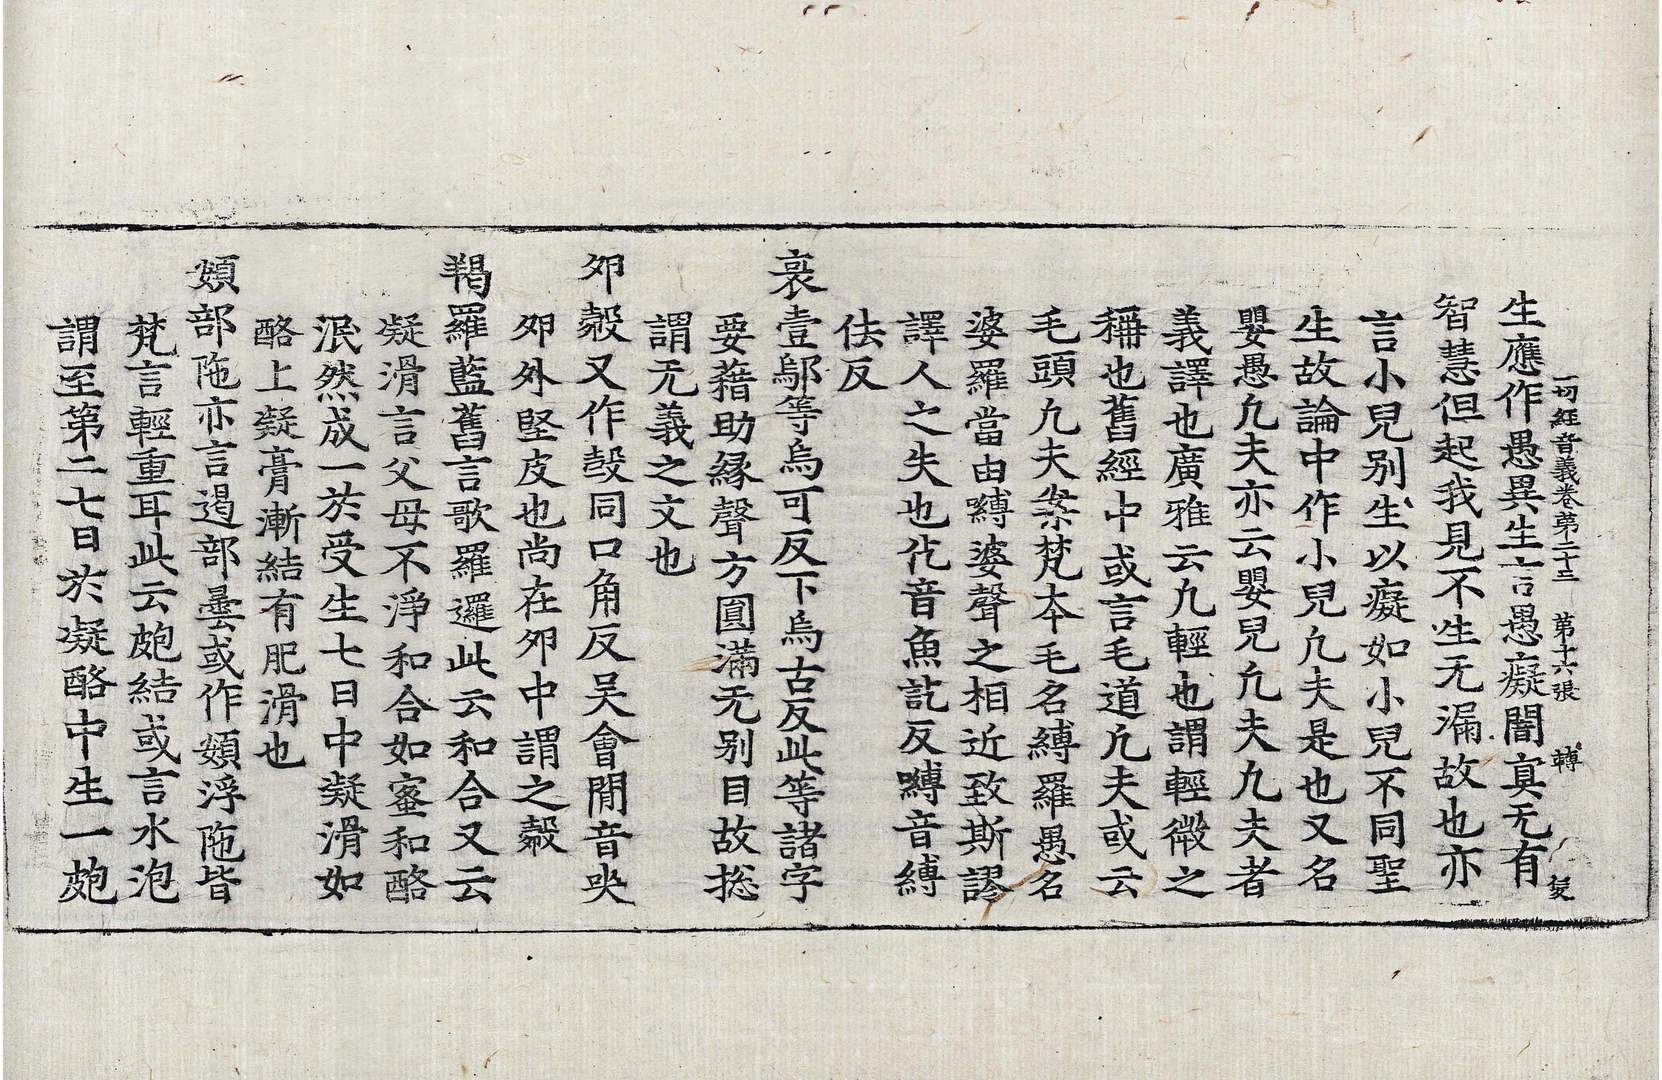 一切經音義卷第二十三　第十六張　轉
生應作愚異生言愚癡闇冥无有
智慧但起我見不生无漏故也亦
言小兒别生以癡如小兒不同聖
生故論中作小兒凢夫是也又名
嬰愚凢夫亦云嬰兒凢夫凢夫者
義譯也廣雅云凢輕也謂輕微之
稱也舊經中或言毛道凢夫或云
毛頭凢夫案梵本毛名縛羅愚名
婆羅當由嚩婆聲之相近致斯謬
譯人之失也仡音魚訖反嚩音縛
佉反
哀壹鄔等烏可反下烏古反此等諸字
要藉助緣聲方圓滿无别目故揔
謂无義之文也
夘㲉又作㱿同口角反吴會間音哭
夘外堅皮也尚在夘中謂之㲉
羯羅藍舊言歌羅邏此云和合又云
凝滑言父母不淨和合如蜜和酪
泯然成一於受生七日中凝滑如
酪上凝膏漸結有肥滑也
頞部陁亦言遏部曇或作頞浮陁皆
梵言輕重耳此云皰結或言水泡
謂至第二七日於凝酪中生一皰